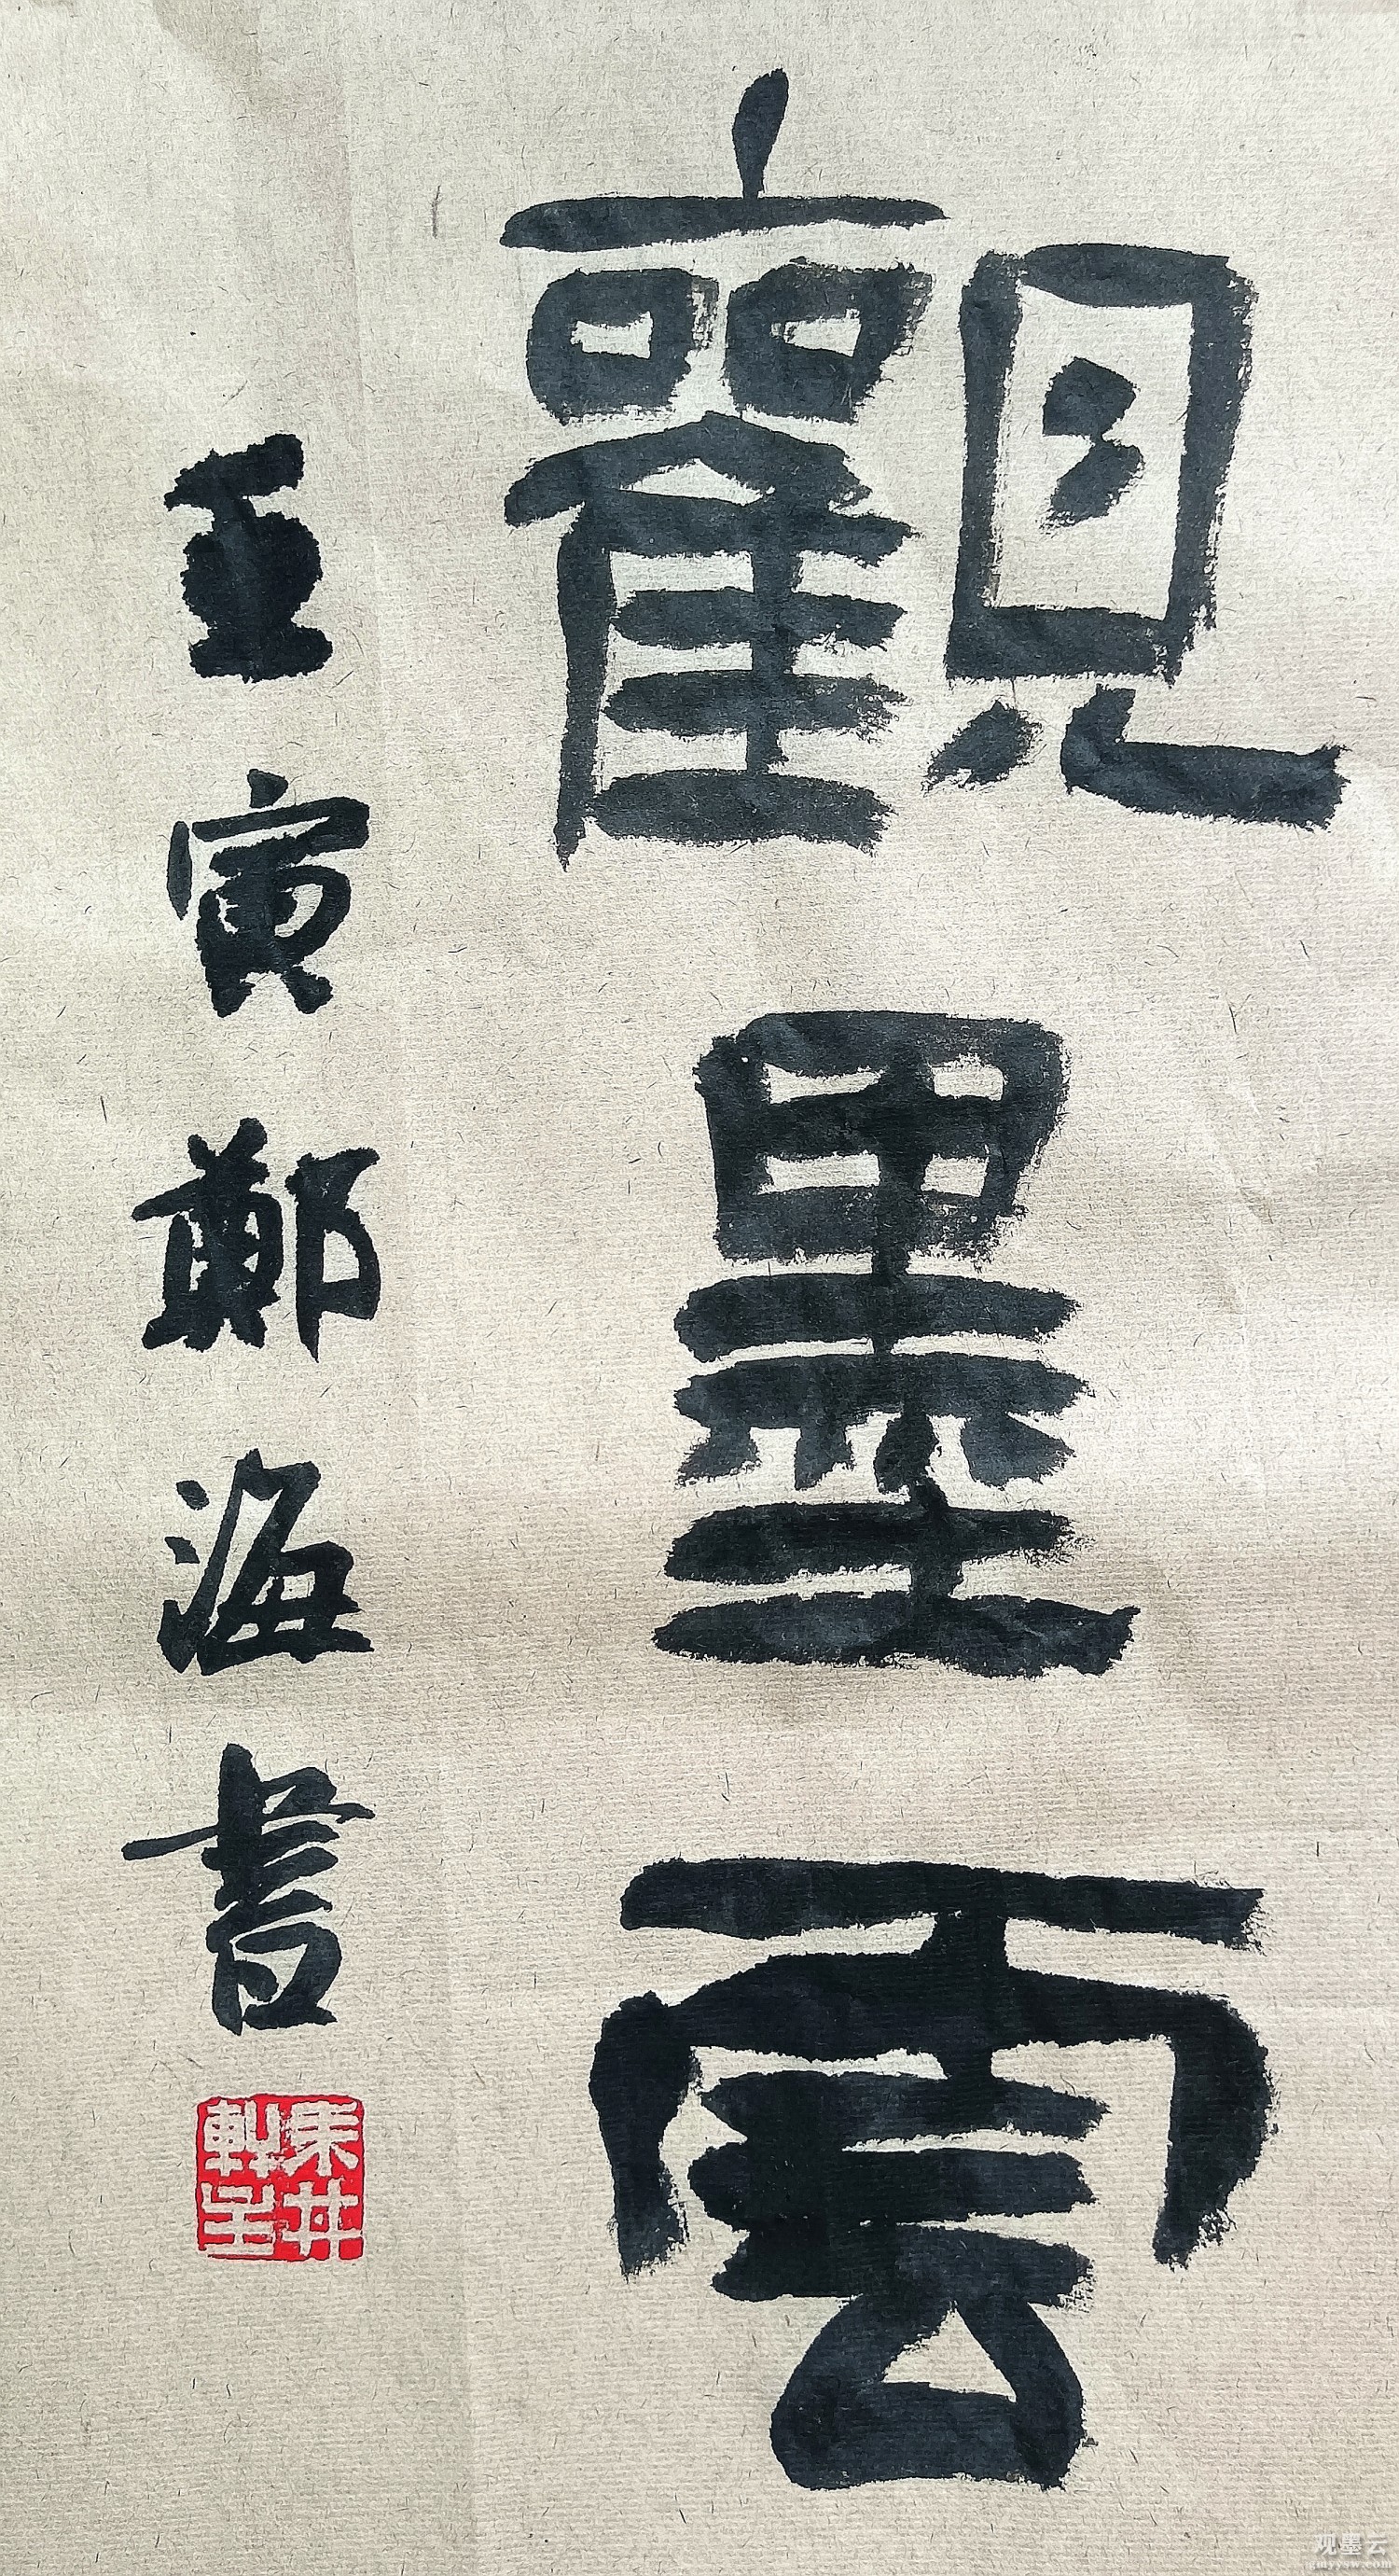 觀墨雲
壬寅鄭海書
观墨云